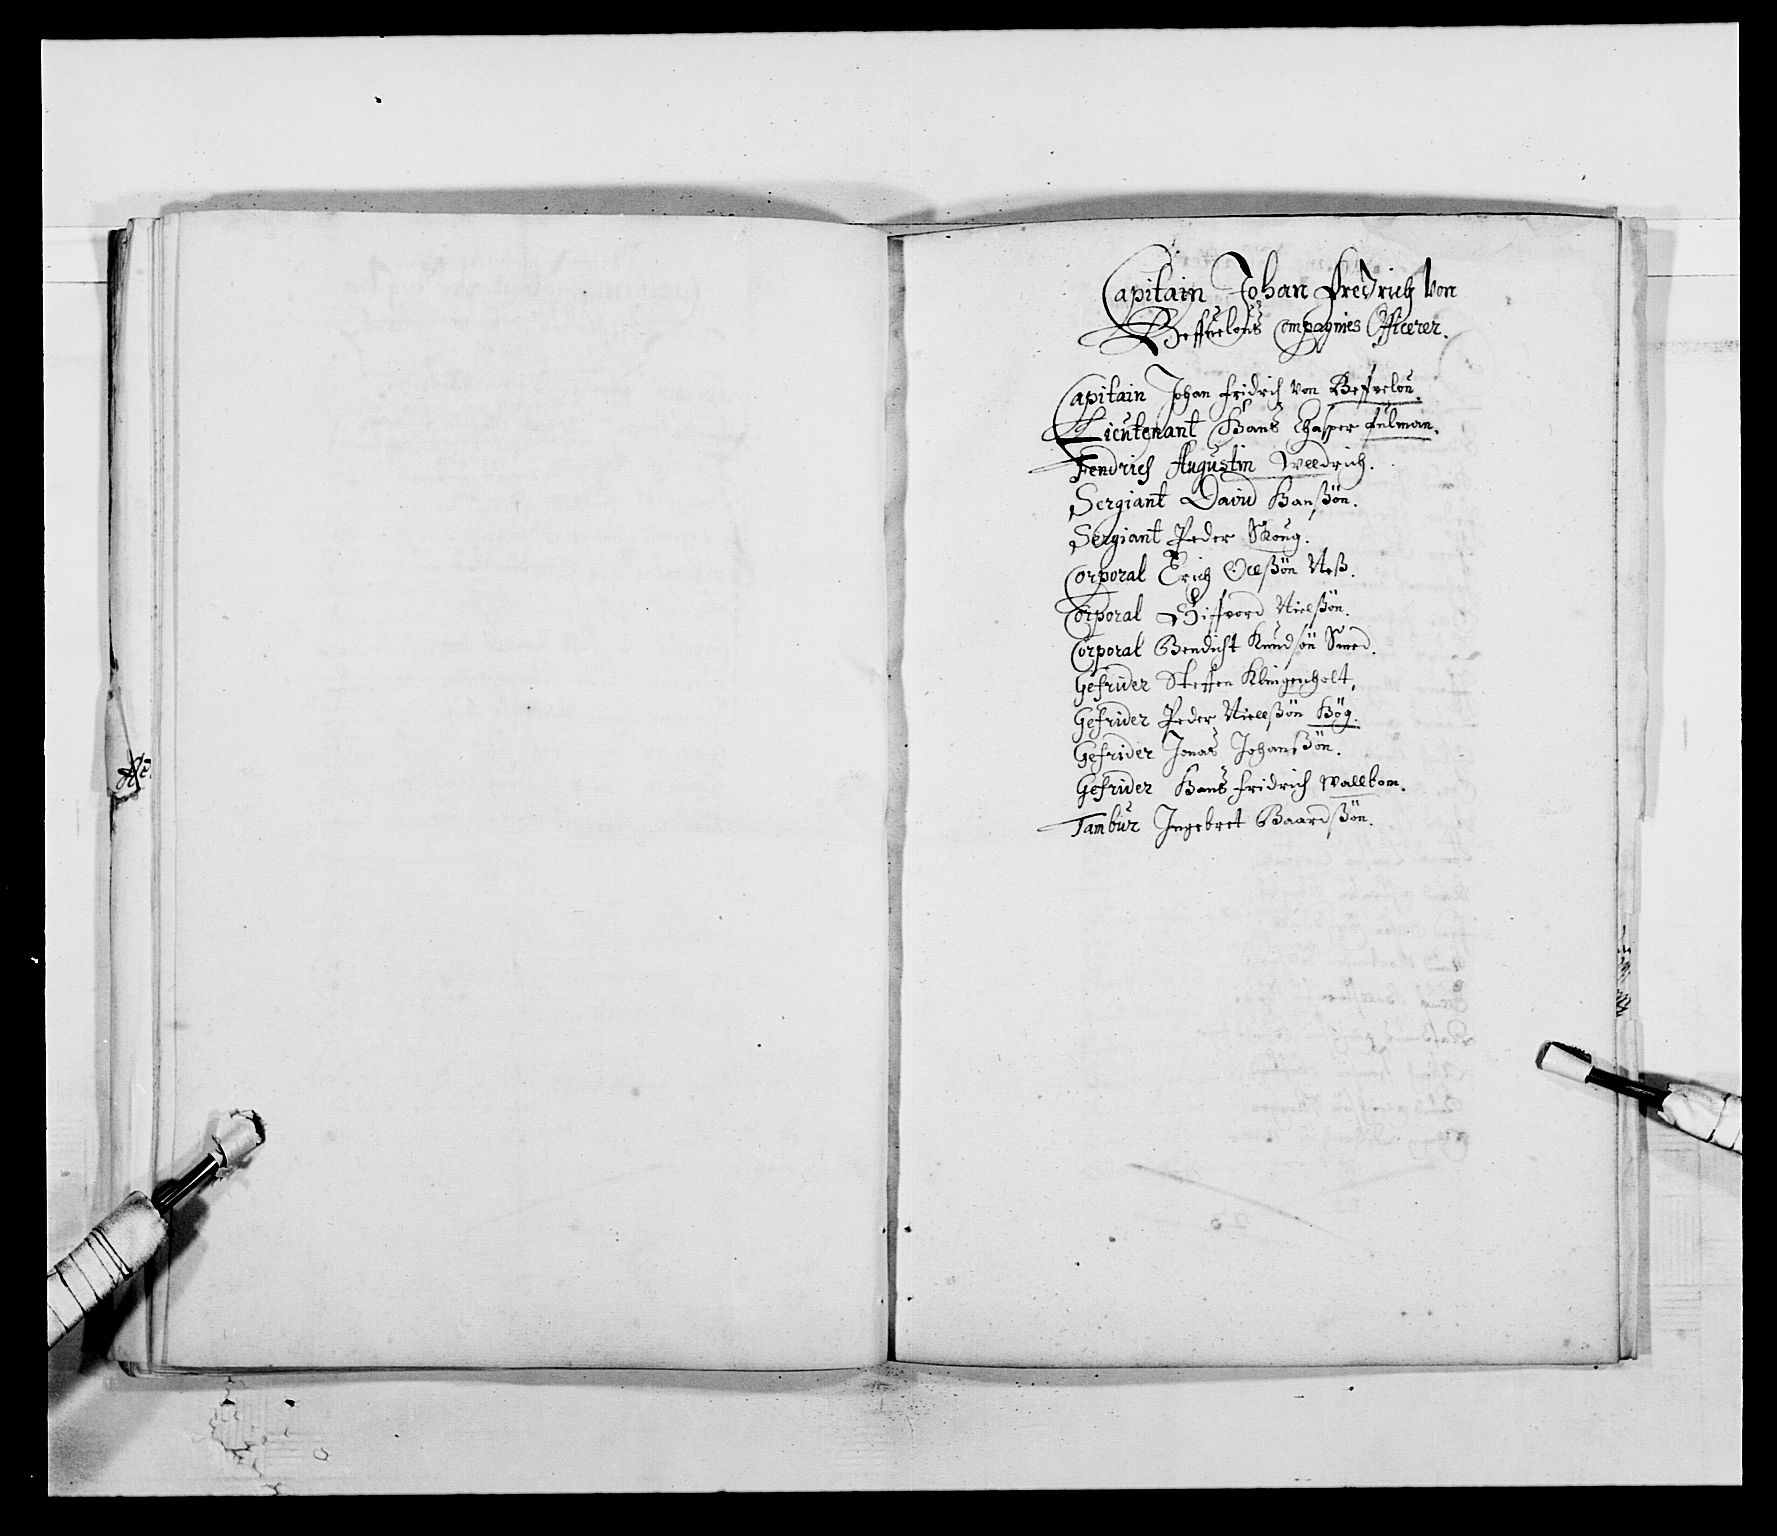 Capitain Johan Fredrich von
Beffuelous Compagnies Officerer.
Capitain Johan Fridrich von Beffvelou.
Lieutenant Hans Chasper Fulman.
Fendrich Augustin Wedrich.
Sergiant David Hanßøn.
Sergiant Peder Skoug.
Corporal Erich Oelßøn Neß.
Corporal Nielßøn.
Corporal Bendicht Knudsøn Smed.
Gefrider Steffen Klingenholt,
Gefrider Peder Niellßøn Høg.
Gefrider Jonas Johanßøn.
Gefrider Hans Fridrich Wallbom.
Tambur Ingebret Baardßøn.